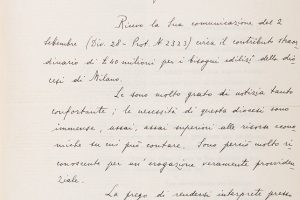 Ricevo la Sua comunicazione del 2
settembre (Div. 28 - Prot. N 2323) circa il contributo straor=
dinario di £ 40 milioni per i bisogni edilizi della dio=
cesi di Milano.
Le sono molto grato di notizia tanto
confortante; le necessità di questa diocesi sono
immense, assai, assai superiori alle risorse econo=
miche su cui può contare. Sono perciò molto ri=
conoscente per un'erogazione veramente provviden=
ziale.
La prego di rendersi interprete presso